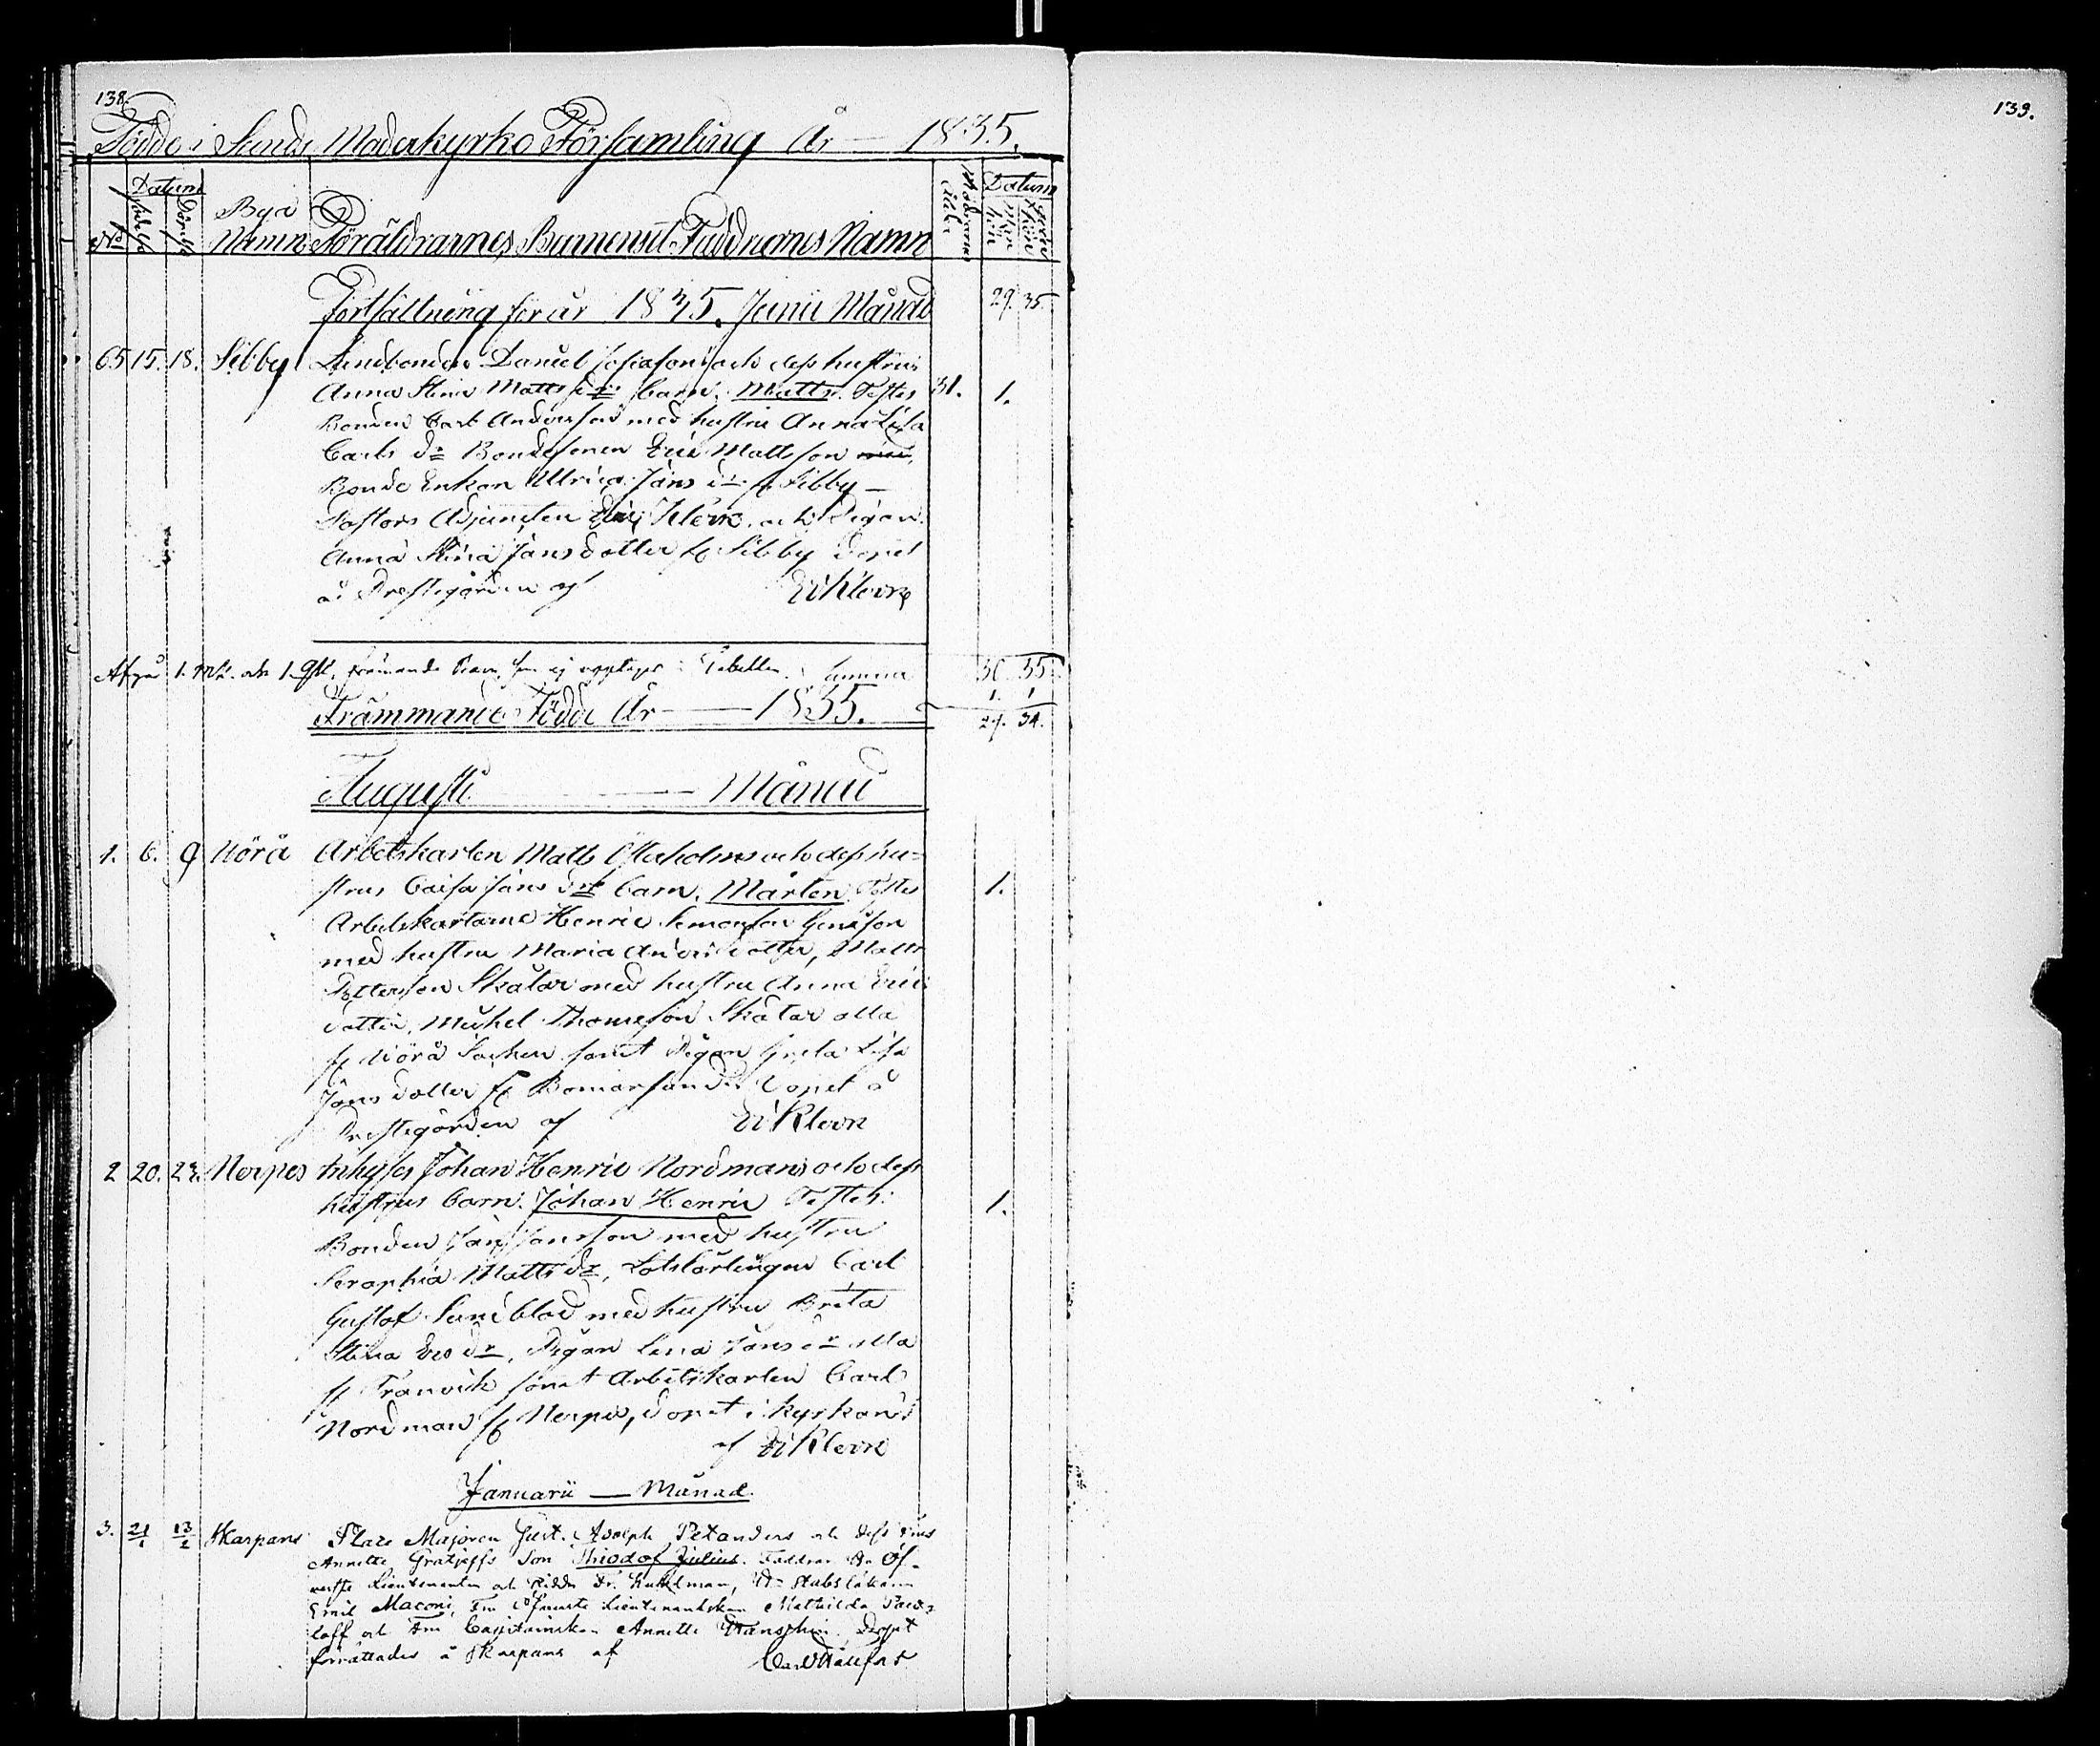 138.
139.
Födde i Sunds Moderkyrko Församling År — 1835.
No Datum Bya Namn Föräldrarnes, Barnens, Faddrarnes Namn Modrens ålder Datum
Fortsättning för år 1835. Junii Månad 29. 35.
65 15. 18. Sibby Landbonden Daniel och dess hustrus
Anna Stina Matts dr barn: Matts. Testes 31. 1.
Bonden Carl Andersson med hustru Anna Lisa
Carls dr Bondesonen Eric Mattsson
Bonde Enkan Ulrica Jans dr fr Sibby —
Pastors Adjuncten Klevre och Pigan
Anna Stina Jansdotter fr Sibby Döpet
å Prestegården af Klevre
Afgår 1. Mk. och 1. Qk. främmande barn, som ej upptages i Tabellen. Summa 30 35
1. 1
Främmande Födde År — 1835. 29. 34.
Augusti — Månad
1. 6. 9 Nörå Arbetskarlen Matts och dess hu=
strus Caisa Jans dr barn: Mårten Testes 1.
Arbetskarlarne Henric Simonsson
med hustru Maria Anders dotter, Matts
Pettersson Skatar med hustru Anna Erics
dotter, Michel Thomesson Skatar alla
fr Nörå Socken samt Pigan Greta Lisa
Jans dotter fr Bomarsund Döpet å
Prestegården af Klevre
2 20. 23. Nerpes Inhyses Johan Henric Nordmans och dess
hustrus barn: Johan Henric Testes: 1.
Bonden Jan Jansson med hustru
Seraphia Matts dr, Lotslärlingen Carl
Gustaf Sundblad med hustru Brita
Stina Ers dr, Pigan Lena Jans dr alla
fr Tranvik samt Arbetskarlen Carl
Nordman fr Nerpes, döpet i kyrkan
af Klevre
Januarii — Månad.
3. 21/1 13/2 Skarpans Platz Majoren Gust. Adolph Petanders och dess Frus
Annette Son Thiodof Julius. Faddrar Hr Öf-
verste Lieutenanten och Ridd. Fr. Hr Stabsläkaren
Emil Maconi, Fru Öfverste Lieutenantskan Mathilda
loff och Fru Capitainskan Annette Döpet
förrättades å Skarpans af